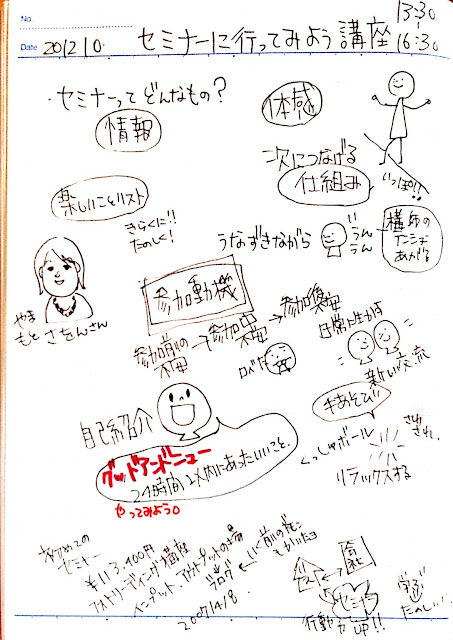 No.
Date 2012.1.0.
セミナーに行ってみよう講座
13:30
16:30
・セミナーって どんなもの？
情報
体感
次につなげる
仕組み
いっぽ!!
楽しいことリスト
きらくに!!
たのしく!
うなずきながら
うん
うん
講師の
テンションが
あがる
やま
もと さをん さん
参加動機
参加前の
不安
参加中
不安
参加後
不安
日常に生かす
新しい交流
自己紹介
グッドアンドニュー
24時間以内にあったいいこと。
やってみよう。
手あそび
くっしゅボール
さわ
さわ
リラックスする
初めての
セミナー
¥113,400円
フォトリーディング講座
インプット、アウトプットの場
ブログ
2007/4/8
会社
セミナー
行動力UP!!
学び
たのしい!